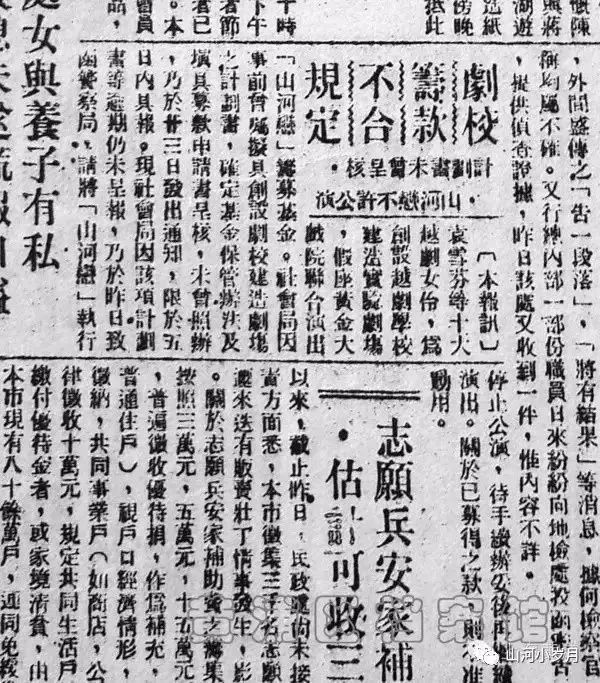 湖遊
與蔣
慨陳
傍晚
抵此
十時
下午
者節
者已
。本
會員
品，
，外間盛傳之「告一段落」，「將有結果」等消息，據何檢察官
稱均屬不確。又行總內部一部份職員日來紛紛向地檢處投
，提供偵查證據，昨日該處又收到一件，惟內容不詳。
劇校
籌款
不合
規定
計劃書未曾呈核
山河戀不許公演
〔本報訊〕
袁雪芬等十大
越劇女伶，爲
創設越劇學校
建造實驗劇塲
，假座黃金大
戲院聯合演出
「山河戀」籌募基金。社會局因
事前曾囑擬具創設劇校建造劇塲
之計劃書，確定基金保管辦法及
塡具募款申請書呈核，未曾照辦
，乃於廿三日發出通知，限於五
日內具報。現社會局因該項計劃
書等逾期仍未呈報，乃於昨日致
函警察局，請將「山河戀」執行
停止公演，待手續辦妥後再
演出。關於已募得之款，則不准
動用。
處女與養子有私
志願兵安家補
估計可收三
以來，截止昨日，民政處尚未接
責方面悉，本市徵集三千名志願
邇來迭有販賣壯丁情事發生，影
。關於志願兵安家補助費之籌集
按照三萬元，五萬元，十五萬元
，普遍徵收優待捐，作爲補充，
普通住戶），視戶口經濟情形，
徵納，共同事業戶（如商店，公
律徵收十萬元，規定共同生活戶
繳付優待金者，或家境清貧，由
本市現有八十餘萬戶，連同免繳
青浦区档案馆
山河小岁月